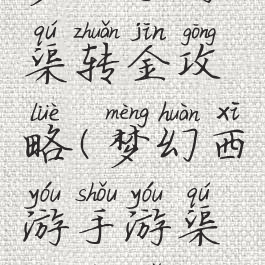 qú zhuǎn jīn gōng
渠转金攻
lüè mèng huàn xī
略(梦幻西
yóu shǒu yóu qú
游手游渠